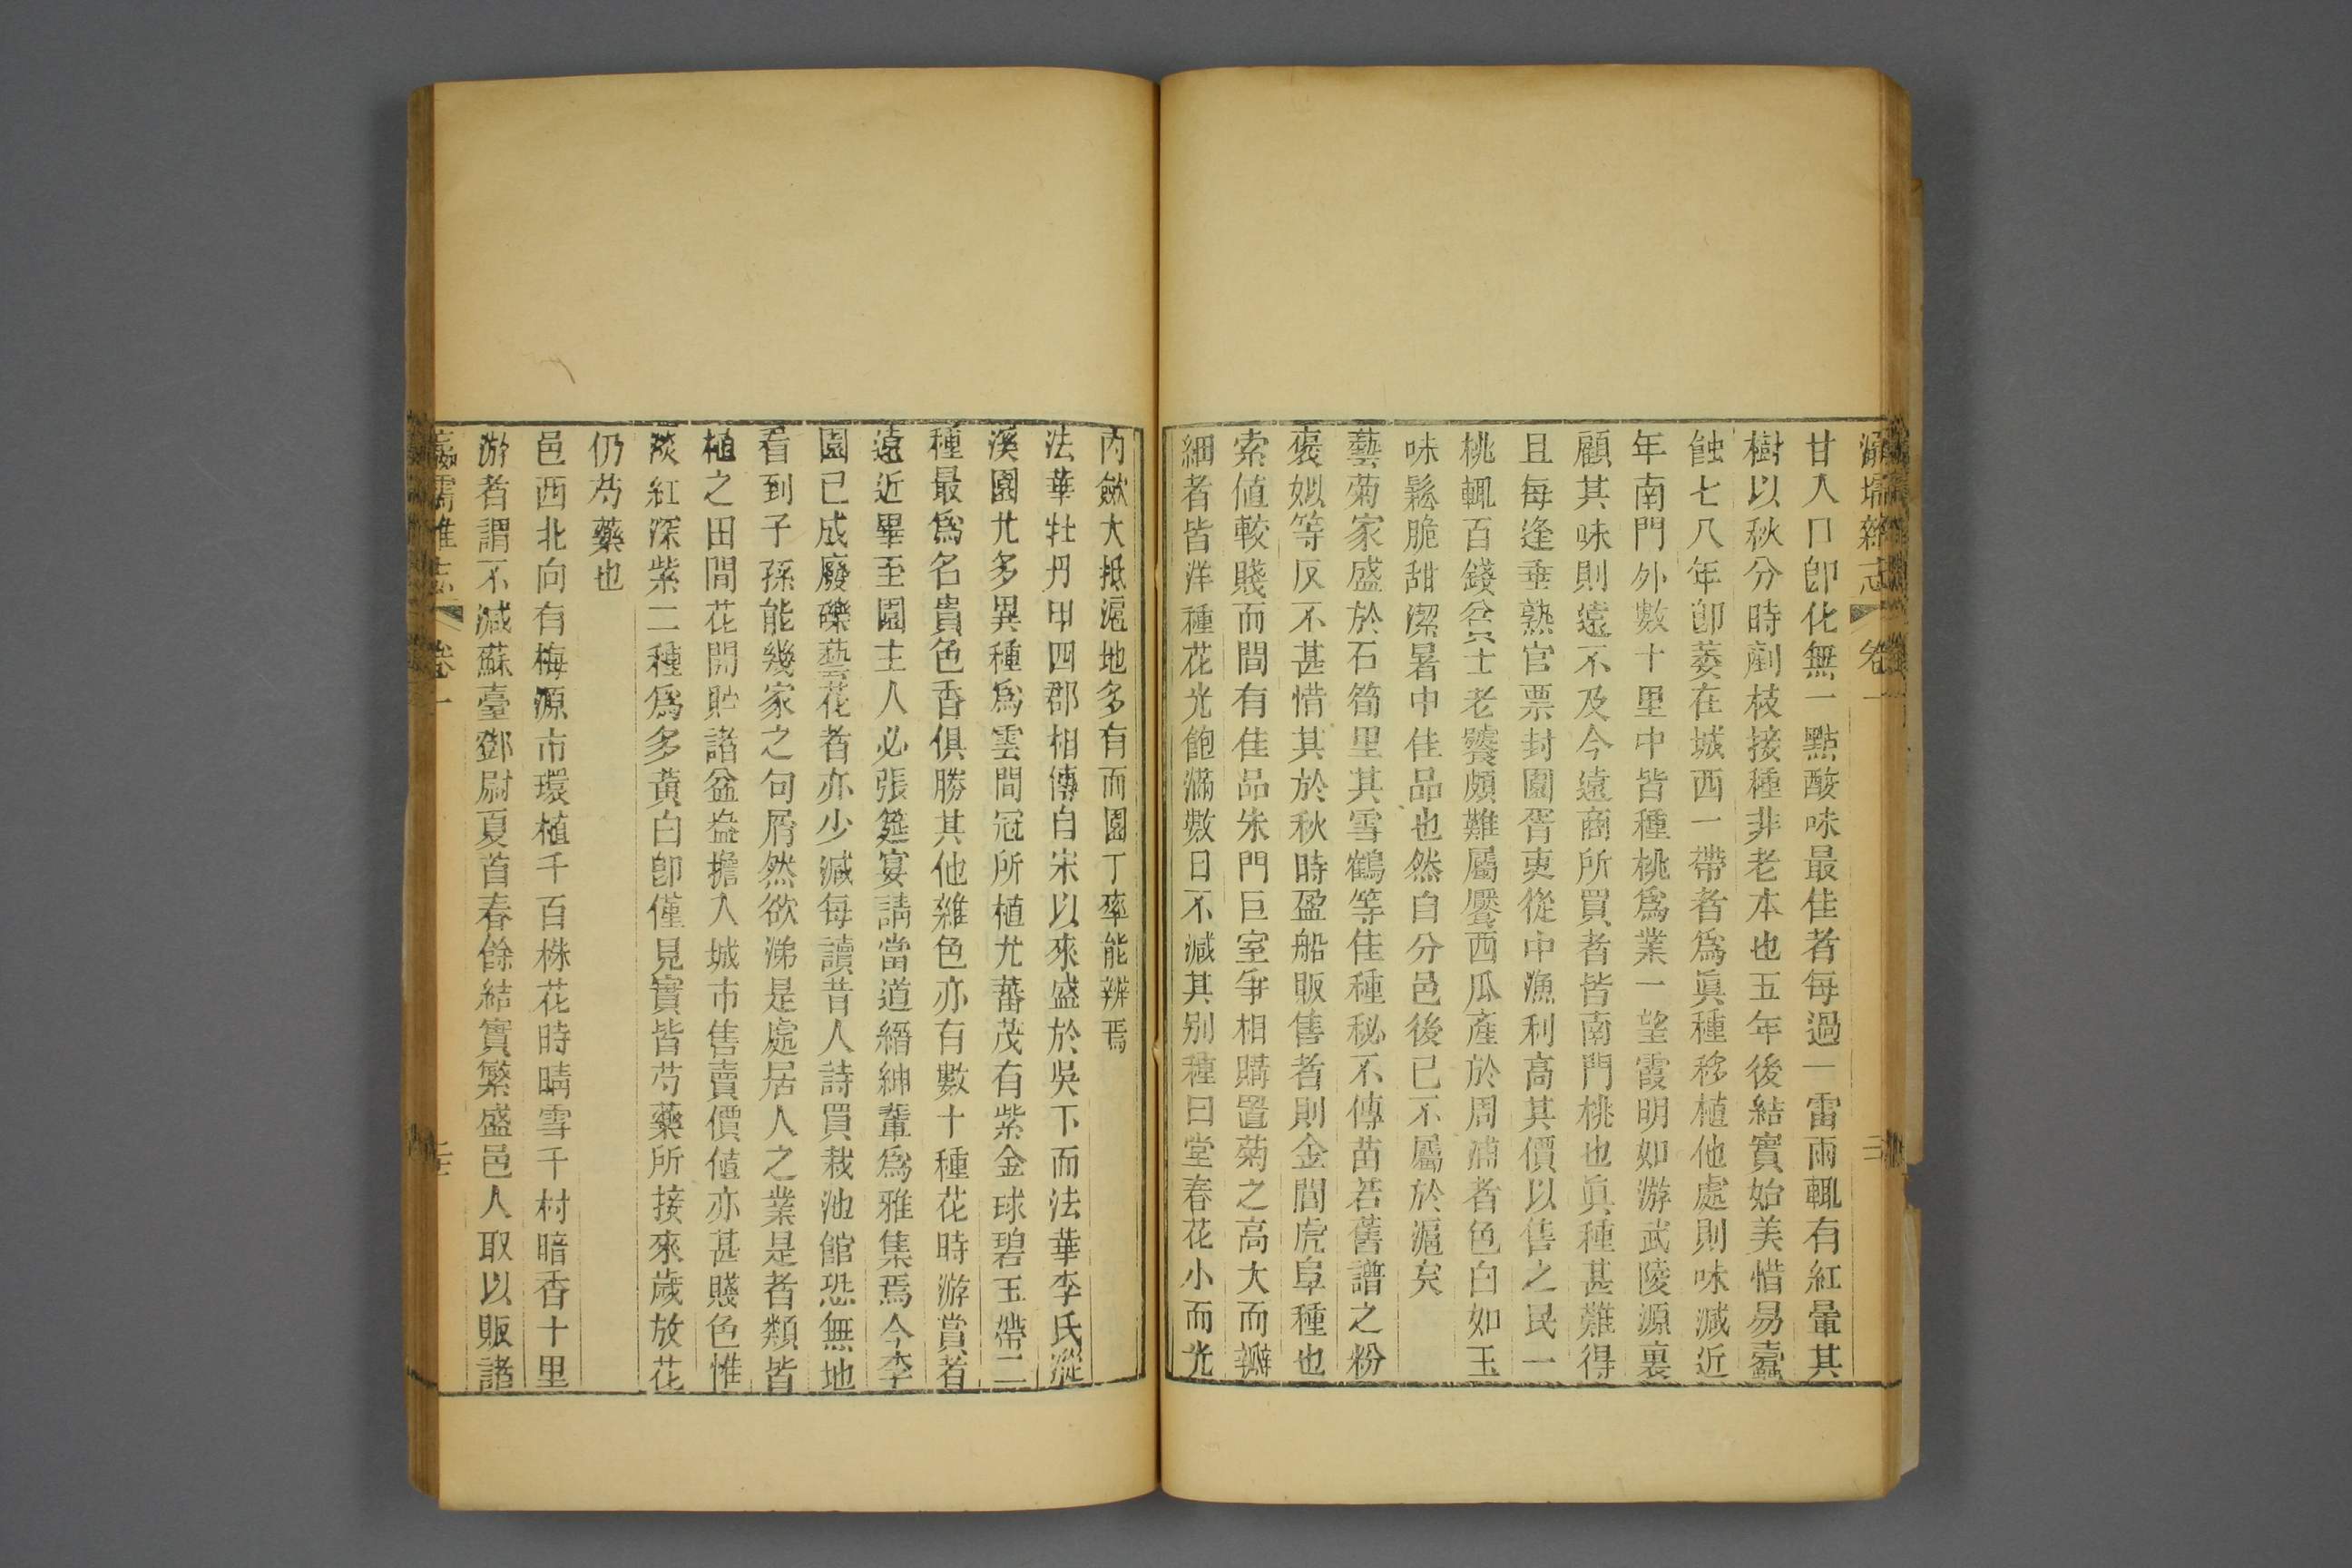 瀛壖雜志 卷一
甘入口卽化無一點酸味最佳者每過一雷雨輒有紅暈其
樹以秋分時劀枝接種非老本也五年後結實始美惜易蠹
蝕七八年卽萎在城西一帶者爲眞種移植他處則味減近
年南門外數十里中皆種桃爲業一望霞明如游武陵源裏
顧其味則遠不及今遠商所買者皆南門桃也眞種甚難得
且每逢垂熟官票封園胥吏從中漁利高其價以售之民一
桃輒百錢貧士老饕頗難屬饜西瓜產於周浦者色白如玉
味鬆脆甜潔暑中佳品也然自分邑後已不屬於滬矣
藝菊家盛於石筍里其雪鶴等佳種秘不傳苗若舊譜之粉
褒姒等反不甚惜其於秋時盈船販售者則金閶虎阜種也
索値較賤而間有佳品朱門巨室爭相購置菊之高大而瓣
細者皆洋種花光飽滿數日不減其别種曰堂春花小而光
內歛大抵滬地多有而園丁率能辨焉
法華牡丹甲四郡相傳自宋以來盛於吳下而法華李氏漎
溪園尤多異種爲雲間冠所植尤蕃茂有紫金球碧玉帶二
種最爲名貴色香俱勝其他雜色亦有數十種花時游賞者
遠近畢至園主人必張筵宴請當道縉紳輩爲雅集焉今李
園已成廢礫藝花者亦少減每讀昔人詩買栽池館恐無地
看到子孫能幾家之句屑然欲涕是處居人之業是者類皆
植之田間花開貯諸盆盎擔入城市售賣價値亦甚賤色惟
淡紅深紫二種爲多黃白卽僅見實皆芍藥所接來歲放花
仍芍藥也
邑西北向有梅源市環植千百株花時晴雪千村暗香十里
游者謂不減蘇臺鄧尉夏首春餘結實繁盛邑人取以販諸
卷一